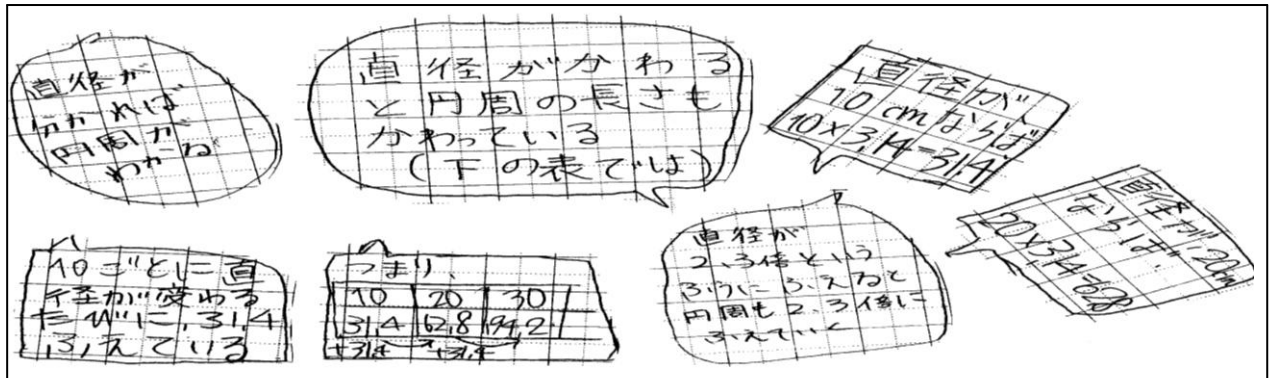 直径が
分かれば
円周が
わかる
直径がかわる
と円周の長さも
かわっている
(下の表では)
直径が、
10cmならば
10×3.14=31.4
10ごとに直
径が変わる
たびに、31.4
ふえている
つまり、
10 20 30
31.4 62.8 94.2
+31.4 +31.4
直径が
2、3倍という
ふうにふえると
円周も2、3倍に
ふえていく
直径が20cm
ならば、
20×3.14=62.8